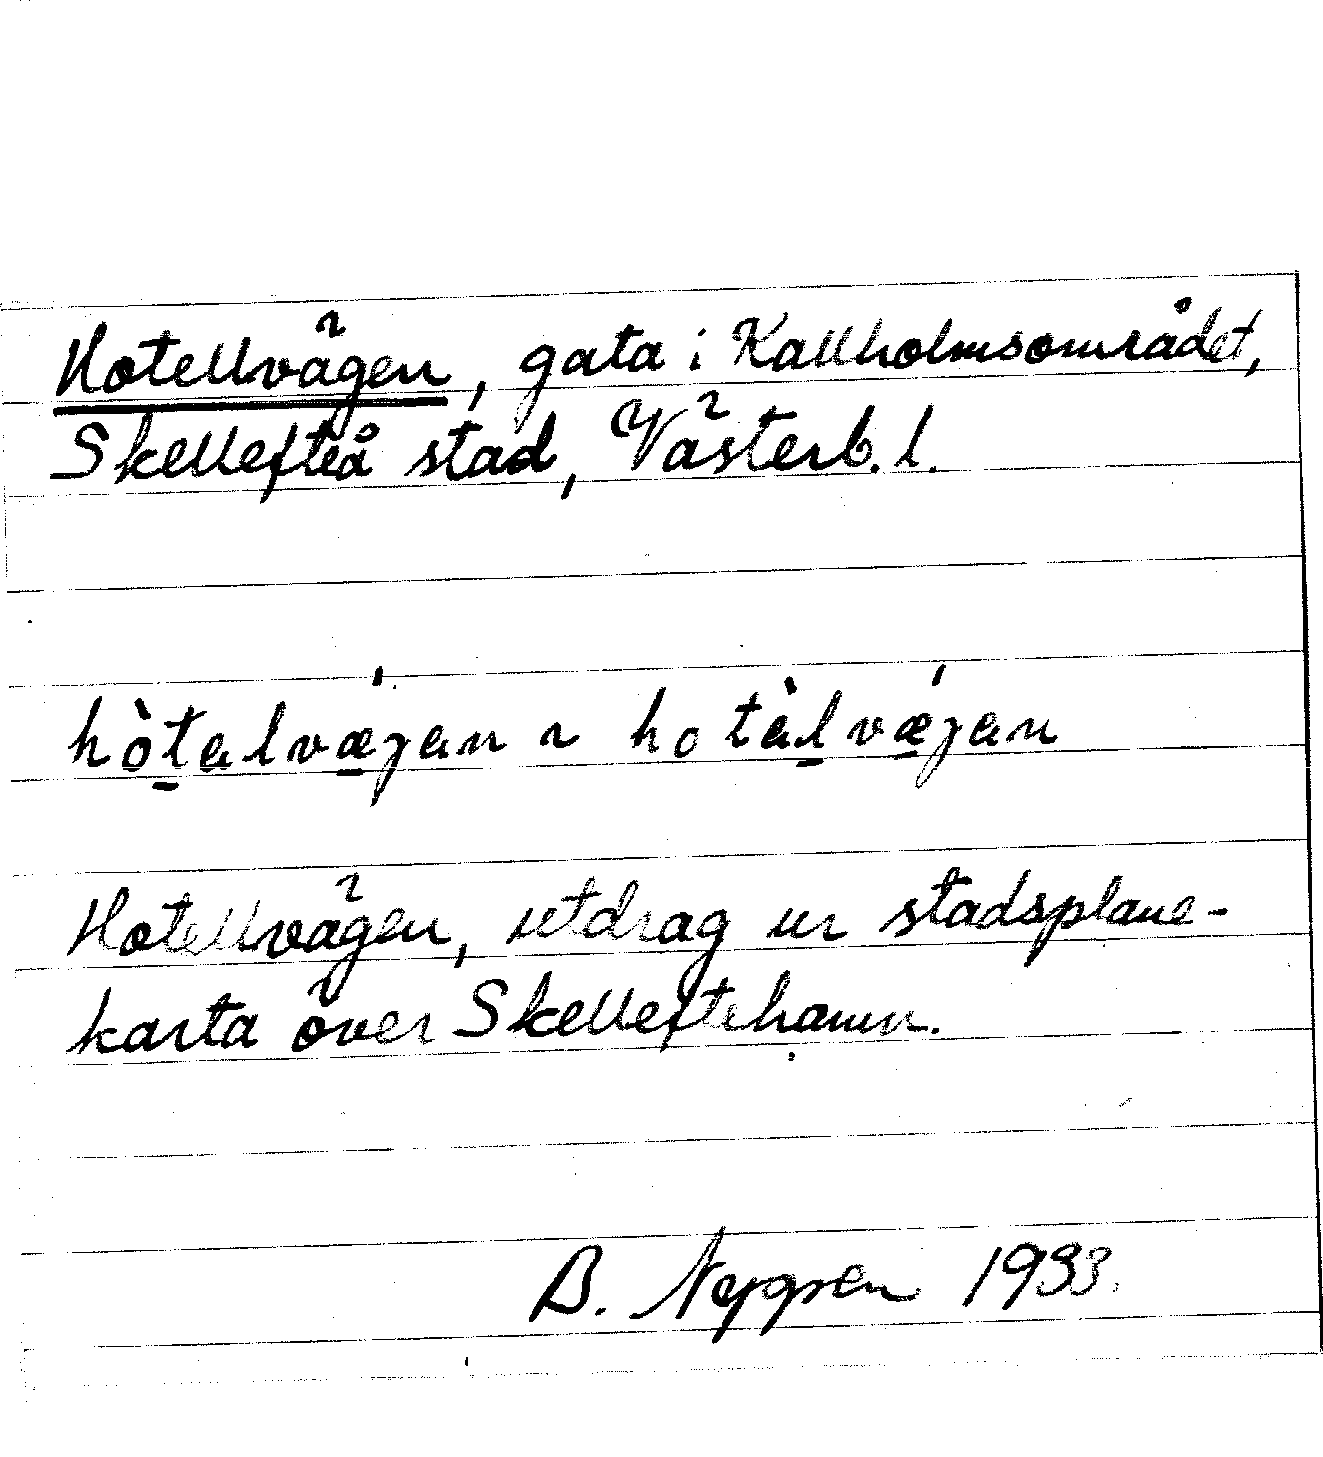 Hotellvägen, gata i Kallholmsområdet,
Skellefteå stad, Västerb. l.
hòtəlvæ̍jən ~ hotə̀lvæ̍jən
Hotellvägen, utdrag ur stadsplane-
karta över Skelleftehamn.
B. Nygren 1933.